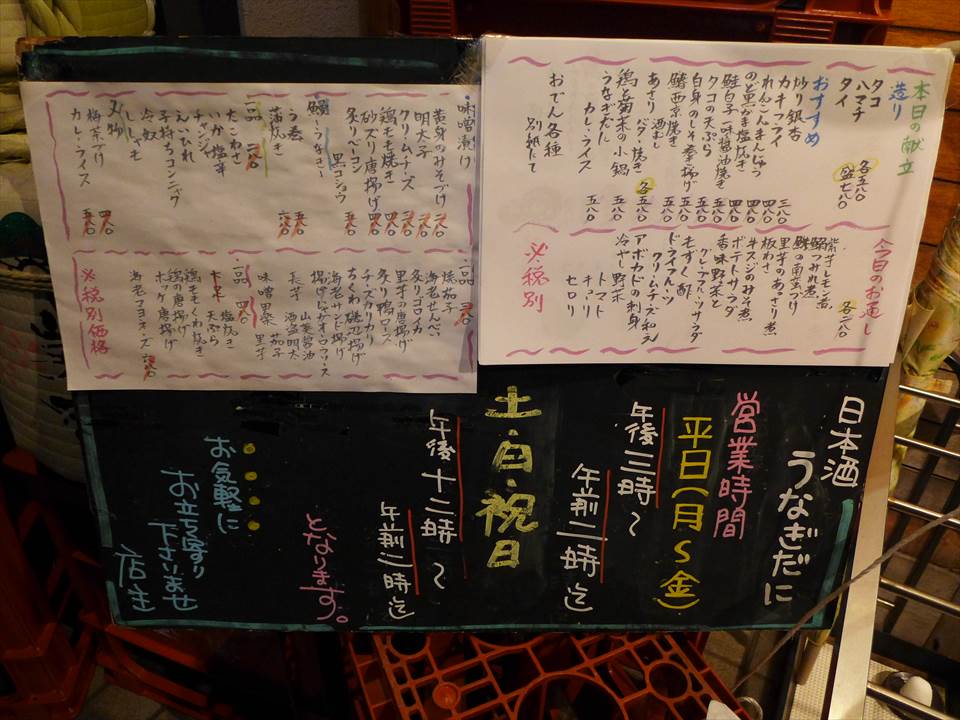 本日の献立
造り
タコ
ハマチ
タイ
各五八〇
盛七八〇
おすすめ
炒り銀杏
カキフライ
れんこんまんじゅう
のど黒かま塩焼き
鮭白子一味醤油焼き
タコの天ぷら
白身のしそ巻き揚げ
鰆西京焼き
あさり 酒むし
バター焼き
鶏と菊菜の小鍋
うなぎぞうすい
カレーライス
おでん各種
別紙にて
三八〇
四八〇
四八〇
五八〇
五八〇
五八〇
五八〇
各五八〇
五八〇
五八〇
今日のお通し
紫芋レモン煮
鰯つみれ煮
鯵の南蛮づけ
里芋のあさり煮
板わさ
牛スジのみそ煮
ポテトサラダ
香味野菜と
グレープフルーツサラダ
もずく酢
ドライフルーツ
クリームチーズ和え
アボカドの刺身
冷やし野菜
トマト
キュウリ
セロリ
各二八〇
必、税別
味噌漬け
黄身のみそづけ
明太子
クリームチーズ
鶏もも焼き
砂ズリ唐揚げ
炙りベーコン
黒コショウ
鰻
う巻
蒲焼き
五八〇
六八〇
一品
たこわさ
いか塩辛
チャンジャ
えいひれ
子持ちコンニャク
冷奴
ししゃも
〆物
梅茶づけ
カレーライス
四八〇
五八〇
一品
焼茄子
海老せんべい
炙りコロイカ
里芋の唐揚げ
炙り鴨ロース
チーズカリカリ
ちくわ磯辺揚げ
海老サンド揚げ
長芋
山葵醤油
酒盗明太
味噌田楽
茄子
里芋
一品 四八〇
トマト
塩焼き
天ぷら
鶏もも くわ焼き
鶏の唐揚げ
ホッケ唐揚げ
海老マヨネーズ
六八〇
必、税別価格
日本酒
うなぎだに
営業時間
平日(月〜金)
午後三時〜
午前二時迄
土・日・祝日
午後十二時〜
午前二時迄
となります。
お気軽に
お立ち寄り
下さいませ
店主